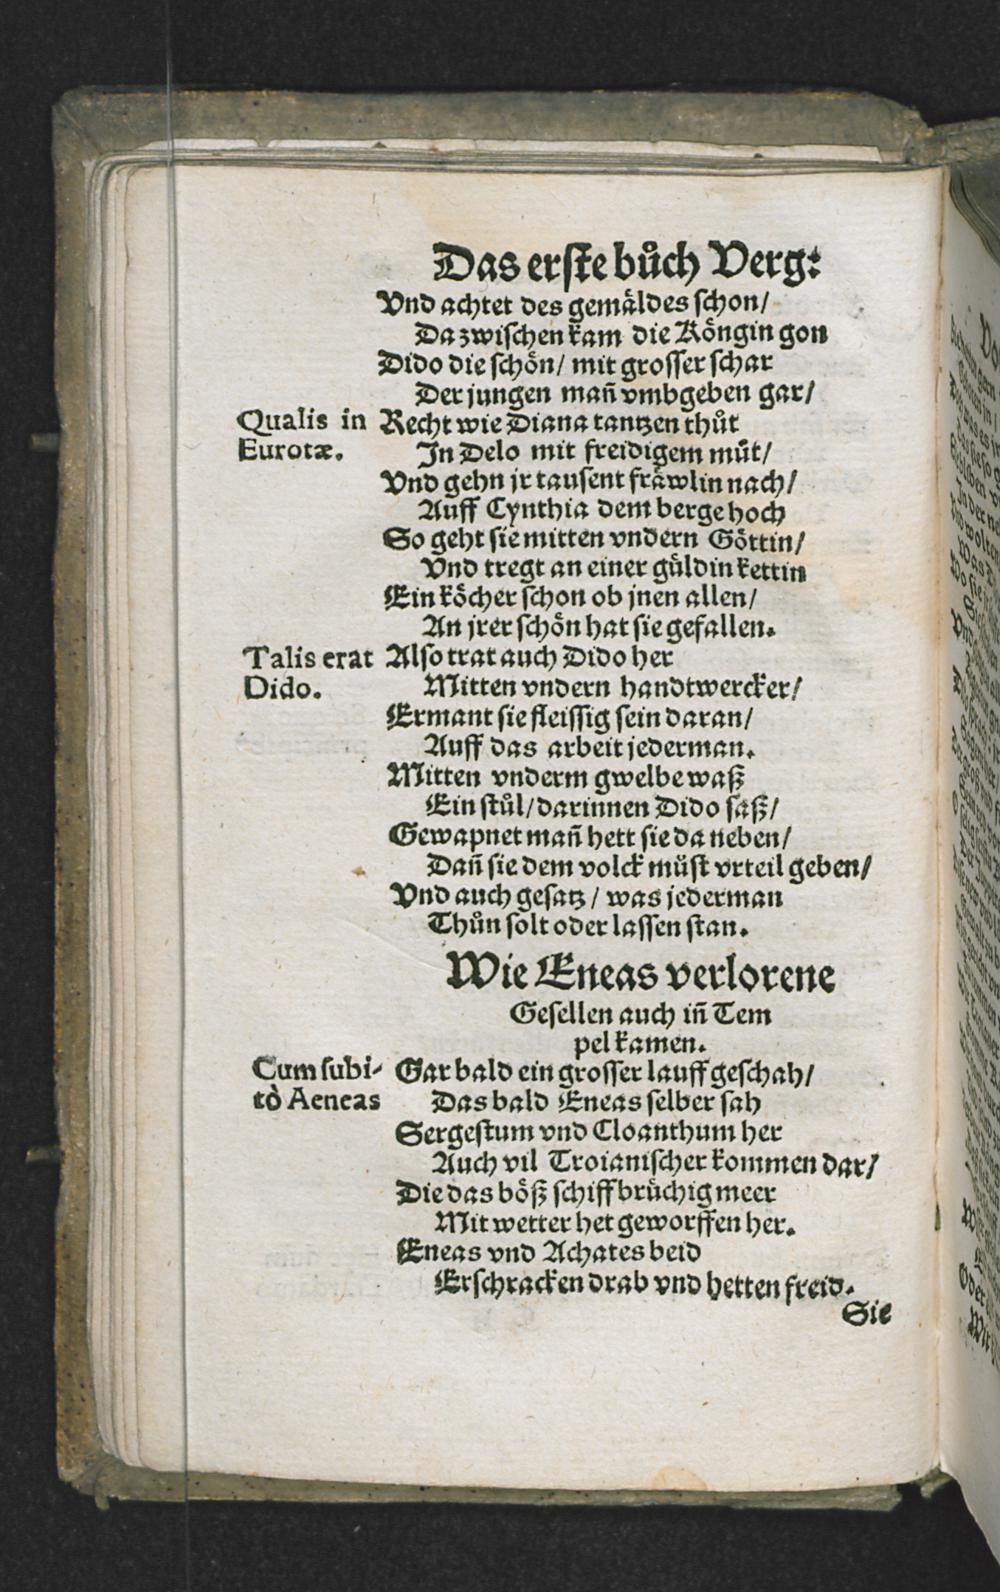 Das erste bůch Verg:
Vnd achtet des gemäldes schon/
Da zwischen kam die Köngin gon
Dido die schön/ mit grosser schar
Der jungen man̄ vmbgeben gar/
Qualis in Eurotæ.
Recht wie Diana tantzen thůt
In Delo mit freidigem můt/
Vnd gehn jr tausent fräwlin nach/
Auff Cynthia dem berge hoch
So geht sie mitten vndern Göttin/
Vnd tregt an einer güldin kettin
Ein köcher schon ob jnen allen/
An jrer schön hat sie gefallen.
Talis erat Dido.
Also trat auch Dido her
Mitten vndern handtwercker/
Ermant sie fleissig sein daran/
Auff das arbeit jederman.
Mitten vnderm gwelbe waß
Ein stůl/ darinnen Dido saß/
Gewapnet man̄ hett sie da neben/
Dan̄ sie dem volck můst vrteil geben/
Vnd auch gesatz/ was jederman
Thůn solt oder lassen stan.
Wie Eneas verlorene
Gesellen auch in̄ Tem
pel kamen.
Cum subi-
tò Aeneas
Gar bald ein grosser lauff geschah/
Das bald Eneas selber sah
Sergestum vnd Cloanthum her
Auch vil Troianischer kommen dar/
Die das böß schiffbrüchig meer
Mit wetter het geworffen her.
Eneas vnd Achates beid
Erschracken drab vnd hetten freid.
Sie